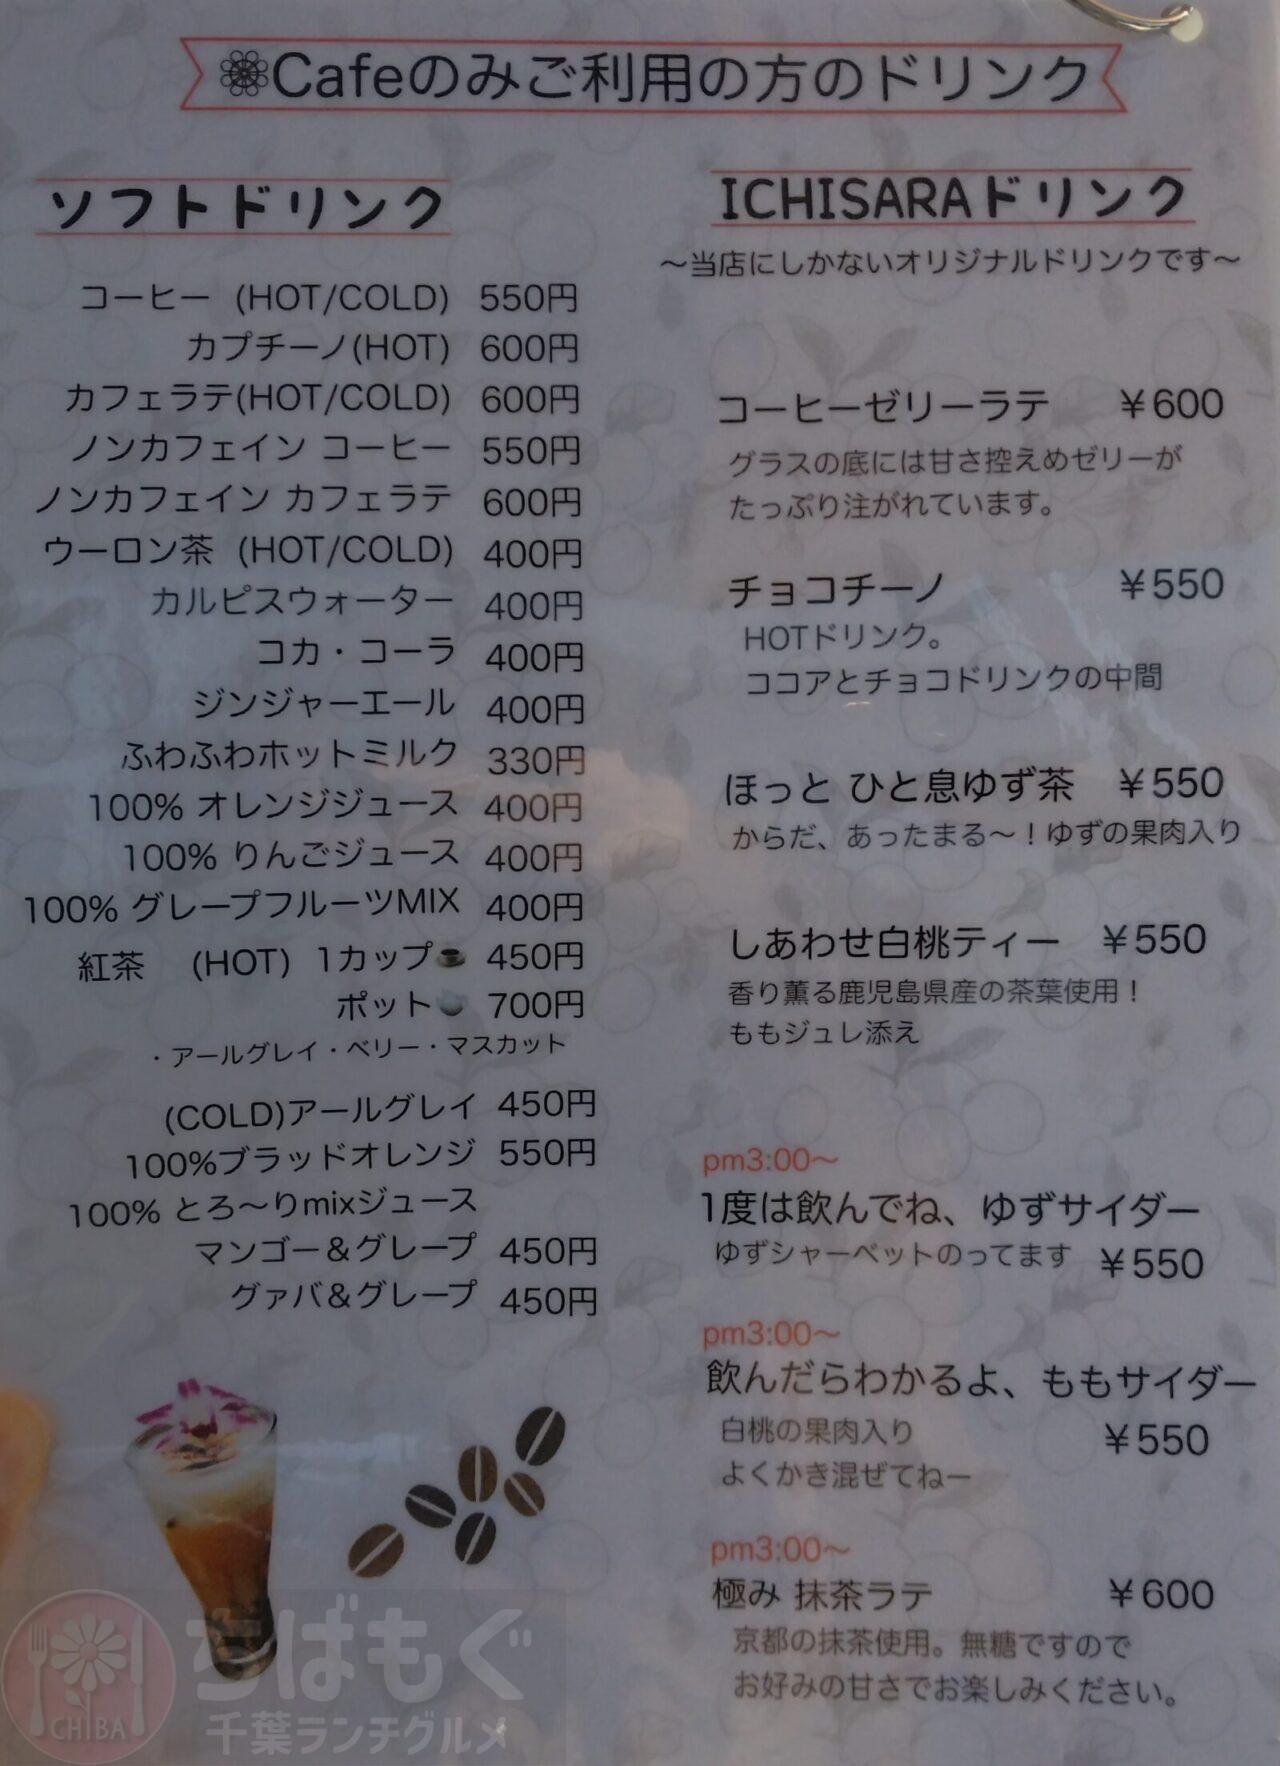 Cafeのみご利用の方のドリンク
ソフトドリンク
コーヒー (HOT/COLD) 550円
カプチーノ(HOT) 600円
カフェラテ(HOT/COLD) 600円
ノンカフェイン コーヒー 550円
ノンカフェイン カフェラテ 600円
ウーロン茶 (HOT/COLD) 400円
カルピスウォーター 400円
コカ・コーラ 400円
ジンジャーエール 400円
ふわふわホットミルク 330円
100% オレンジジュース 400円
100% りんごジュース 400円
100% グレープフルーツMIX 400円
紅茶 (HOT) 1カップ 450円
ポット 700円
・アールグレイ・ベリー・マスカット
(COLD)アールグレイ 450円
100%ブラッドオレンジ 550円
100% とろ〜りmixジュース
マンゴー＆グレープ 450円
グァバ＆グレープ 450円
ICHISARAドリンク
〜当店にしかないオリジナルドリンクです〜
コーヒーゼリーラテ ￥600
グラスの底には甘さ控えめゼリーが
たっぷり注がれています。
チョコチーノ ￥550
HOTドリンク。
ココアとチョコドリンクの中間
ほっと ひと息ゆず茶 ￥550
からだ、あったまる〜！ゆずの果肉入り
しあわせ白桃ティー ￥550
香り薫る鹿児島県産の茶葉使用！
ももジュレ添え
pm3:00〜
1度は飲んでね、ゆずサイダー
ゆずシャーベットのってます ￥550
pm3:00〜
飲んだらわかるよ、ももサイダー
白桃の果肉入り ￥550
よくかき混ぜてねー
pm3:00〜
極み 抹茶ラテ ￥600
京都の抹茶使用。無糖ですので
お好みの甘さでお楽しみください。
CHIBA
ちばもぐ
千葉ランチグルメ